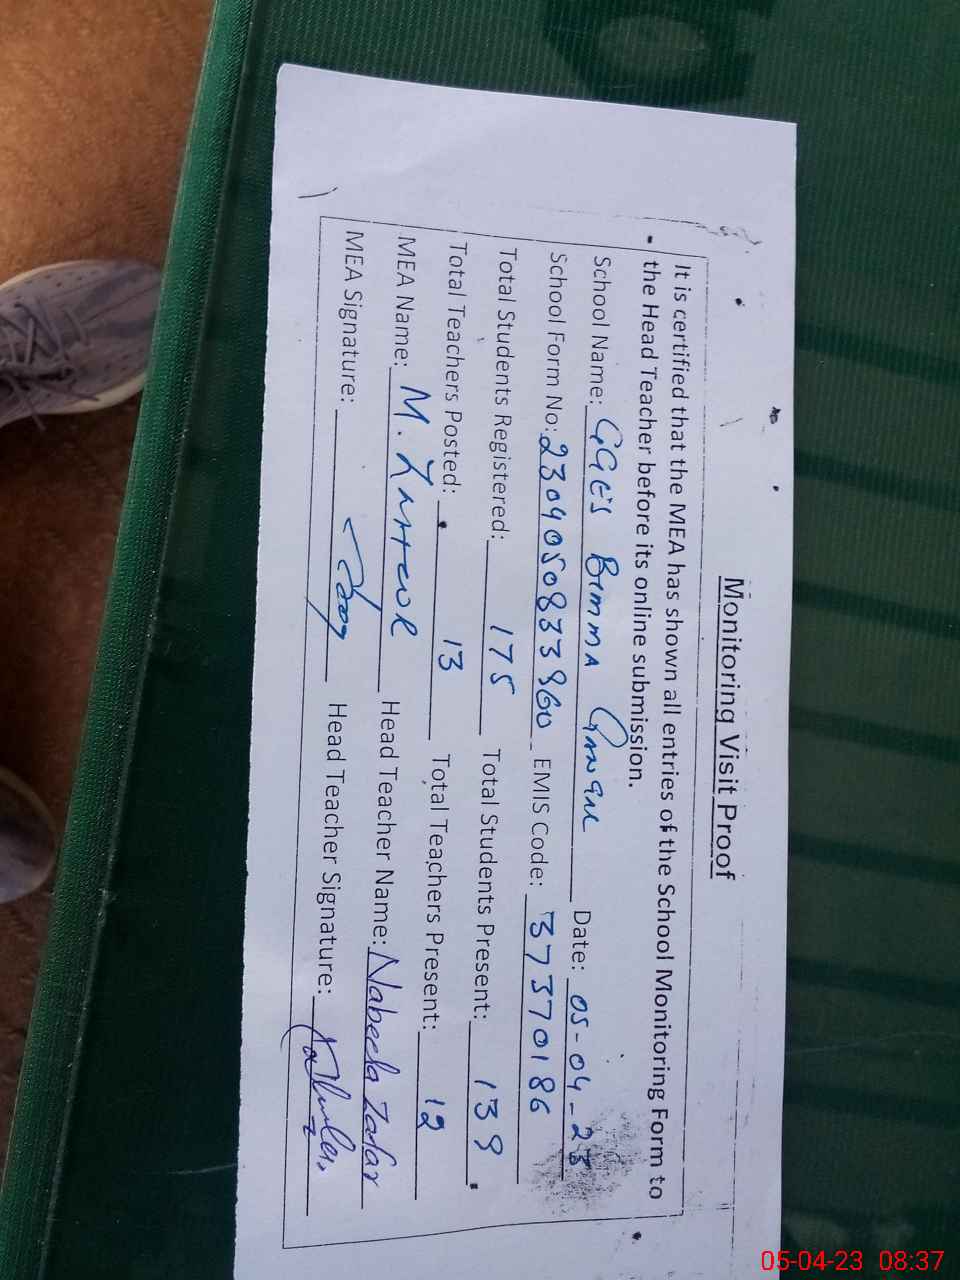 Monitoring Visit Proof
It is certified that the MEA has shown all entries of the School Monitoring Form to
the Head Teacher before its online submission.
School Name: GGES Bimma Date: 05-04-23
School Form No: EMIS Code: 37370186
Total Students Registered: 175 Total Students Present: 139
Total Teachers Posted: 13 Total Teachers Present: 12
MEA Name: M. Head Teacher Name: Nabeela Zafar
MEA Signature: Head Teacher Signature:
05-04-23 08:37